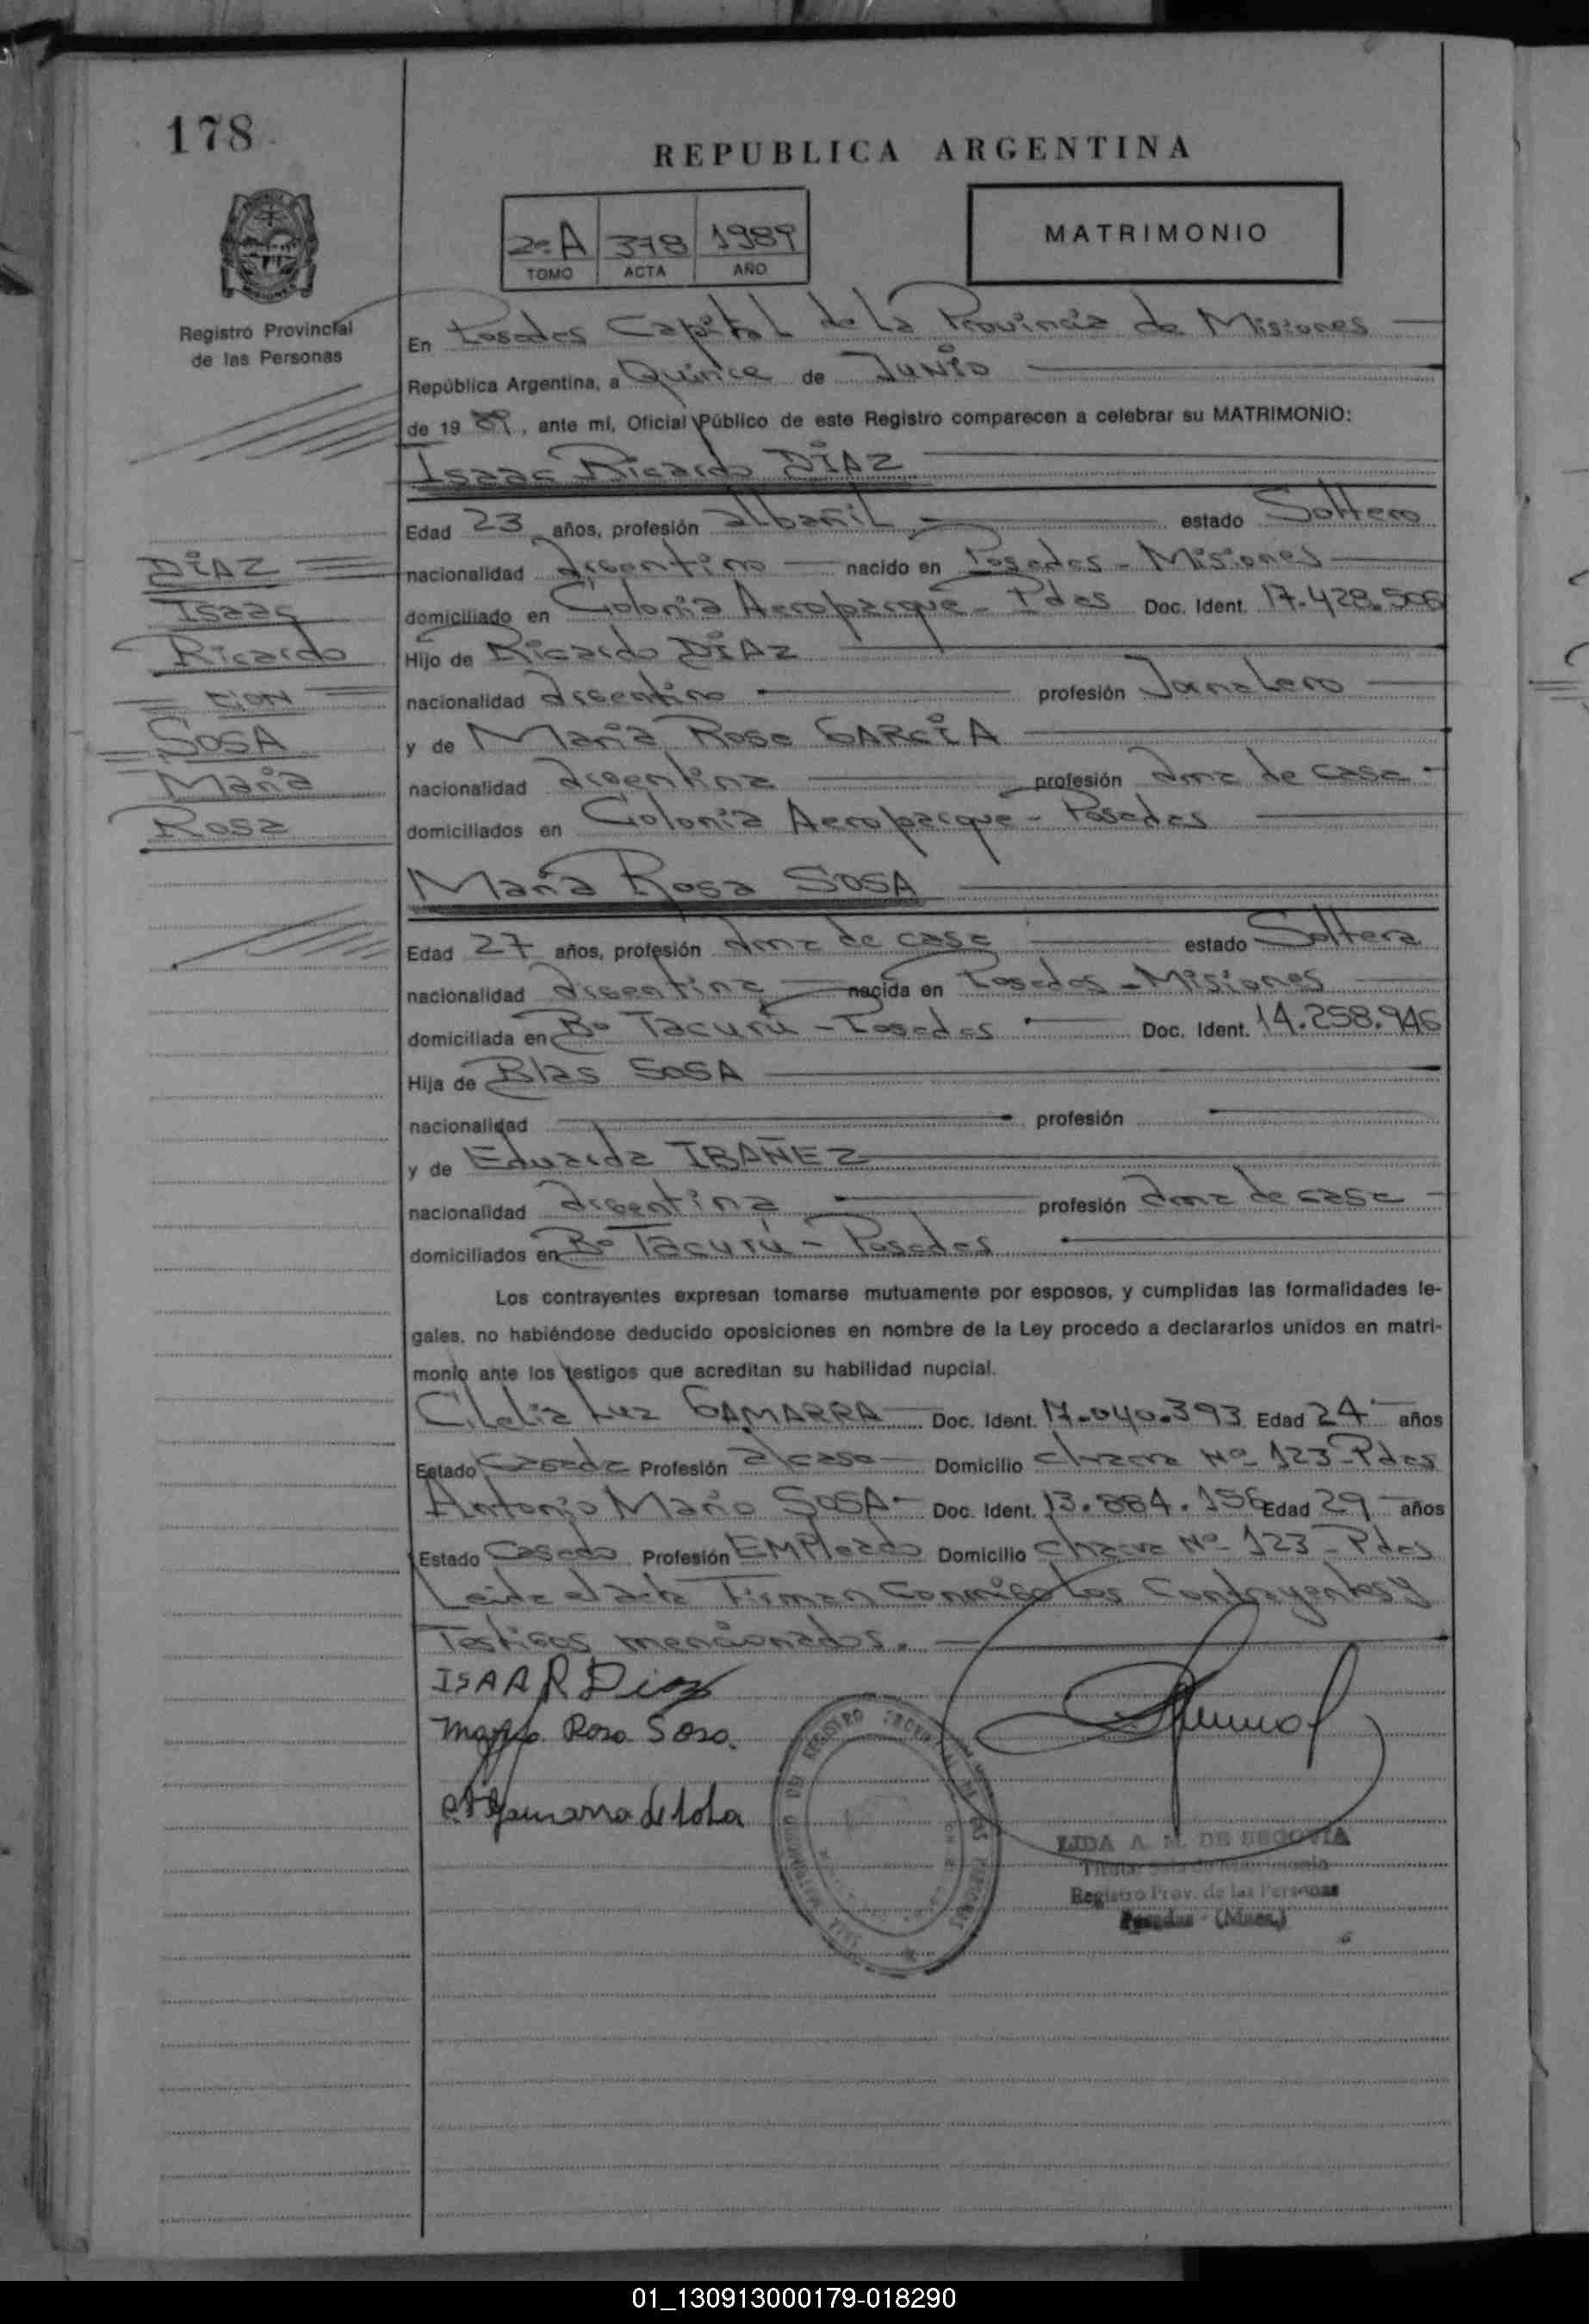 178
REPUBLICA ARGENTINA
2º A 378 1989
TOMO ACTA AÑO
MATRIMONIO
Registro Provincial
de las Personas
En Posadas Capital de la Provincia de Misiones
República Argentina, a Quince de Junio
de 19 89, ante mí, Oficial Público de este Registro comparecen a celebrar su MATRIMONIO:
Isaac Ricardo DÍAZ
Edad 23 años, profesión albañil estado Soltero
nacionalidad Argentino nacido en Posadas - Misiones
domiciliado en Colonia Aeroparque - Pdas Doc. Ident. 17.428.506
Hijo de Ricardo DÍAZ
nacionalidad Argentino profesión Jornalero
y de María Rosa GARCÍA
nacionalidad Argentina profesión Ama de casa
domiciliados en Colonia Aeroparque - Posadas
DÍAZ
Isaac
Ricardo
CON
SOSA
María
Rosa
María Rosa SOSA
Edad 27 años, profesión Ama de casa estado Soltera
nacionalidad Argentina nacida en Posadas - Misiones
domiciliada en Bº Tacurú - Posadas Doc. Ident. 14.258.946
Hija de Blas SOSA
nacionalidad profesión
y de Eduarda IBAÑEZ
nacionalidad Argentina profesión Ama de casa
domiciliados en Bº Tacurú - Posadas
Los contrayentes expresan tomarse mutuamente por esposos, y cumplidas las formalidades le-
gales, no habiéndose deducido oposiciones en nombre de la Ley procedo a declararlos unidos en matri-
monio ante los testigos que acreditan su habilidad nupcial.
Luz GAMARRA Doc. Ident. 17.040.393 Edad 24 años
Estado Casada Profesión Domicilio chacra Nº 123 - Pdas
Antonio Mario SOSA - Doc. Ident. 13.884.156 Edad 29 años
Estado Casado Profesión EMPleado Domicilio chacra Nº 123 - Pdas
Leida el acta Firman Conmigo Los Contrayentes y
Testigos mencionados.
ISAA R Diaz
Maria Rosa Sosa.
Gamarra de
LIDA A. M. DE SEGOVIA
Registro Prov. de las Personas
Posadas - (Mnes.)
01_130913000179-018290